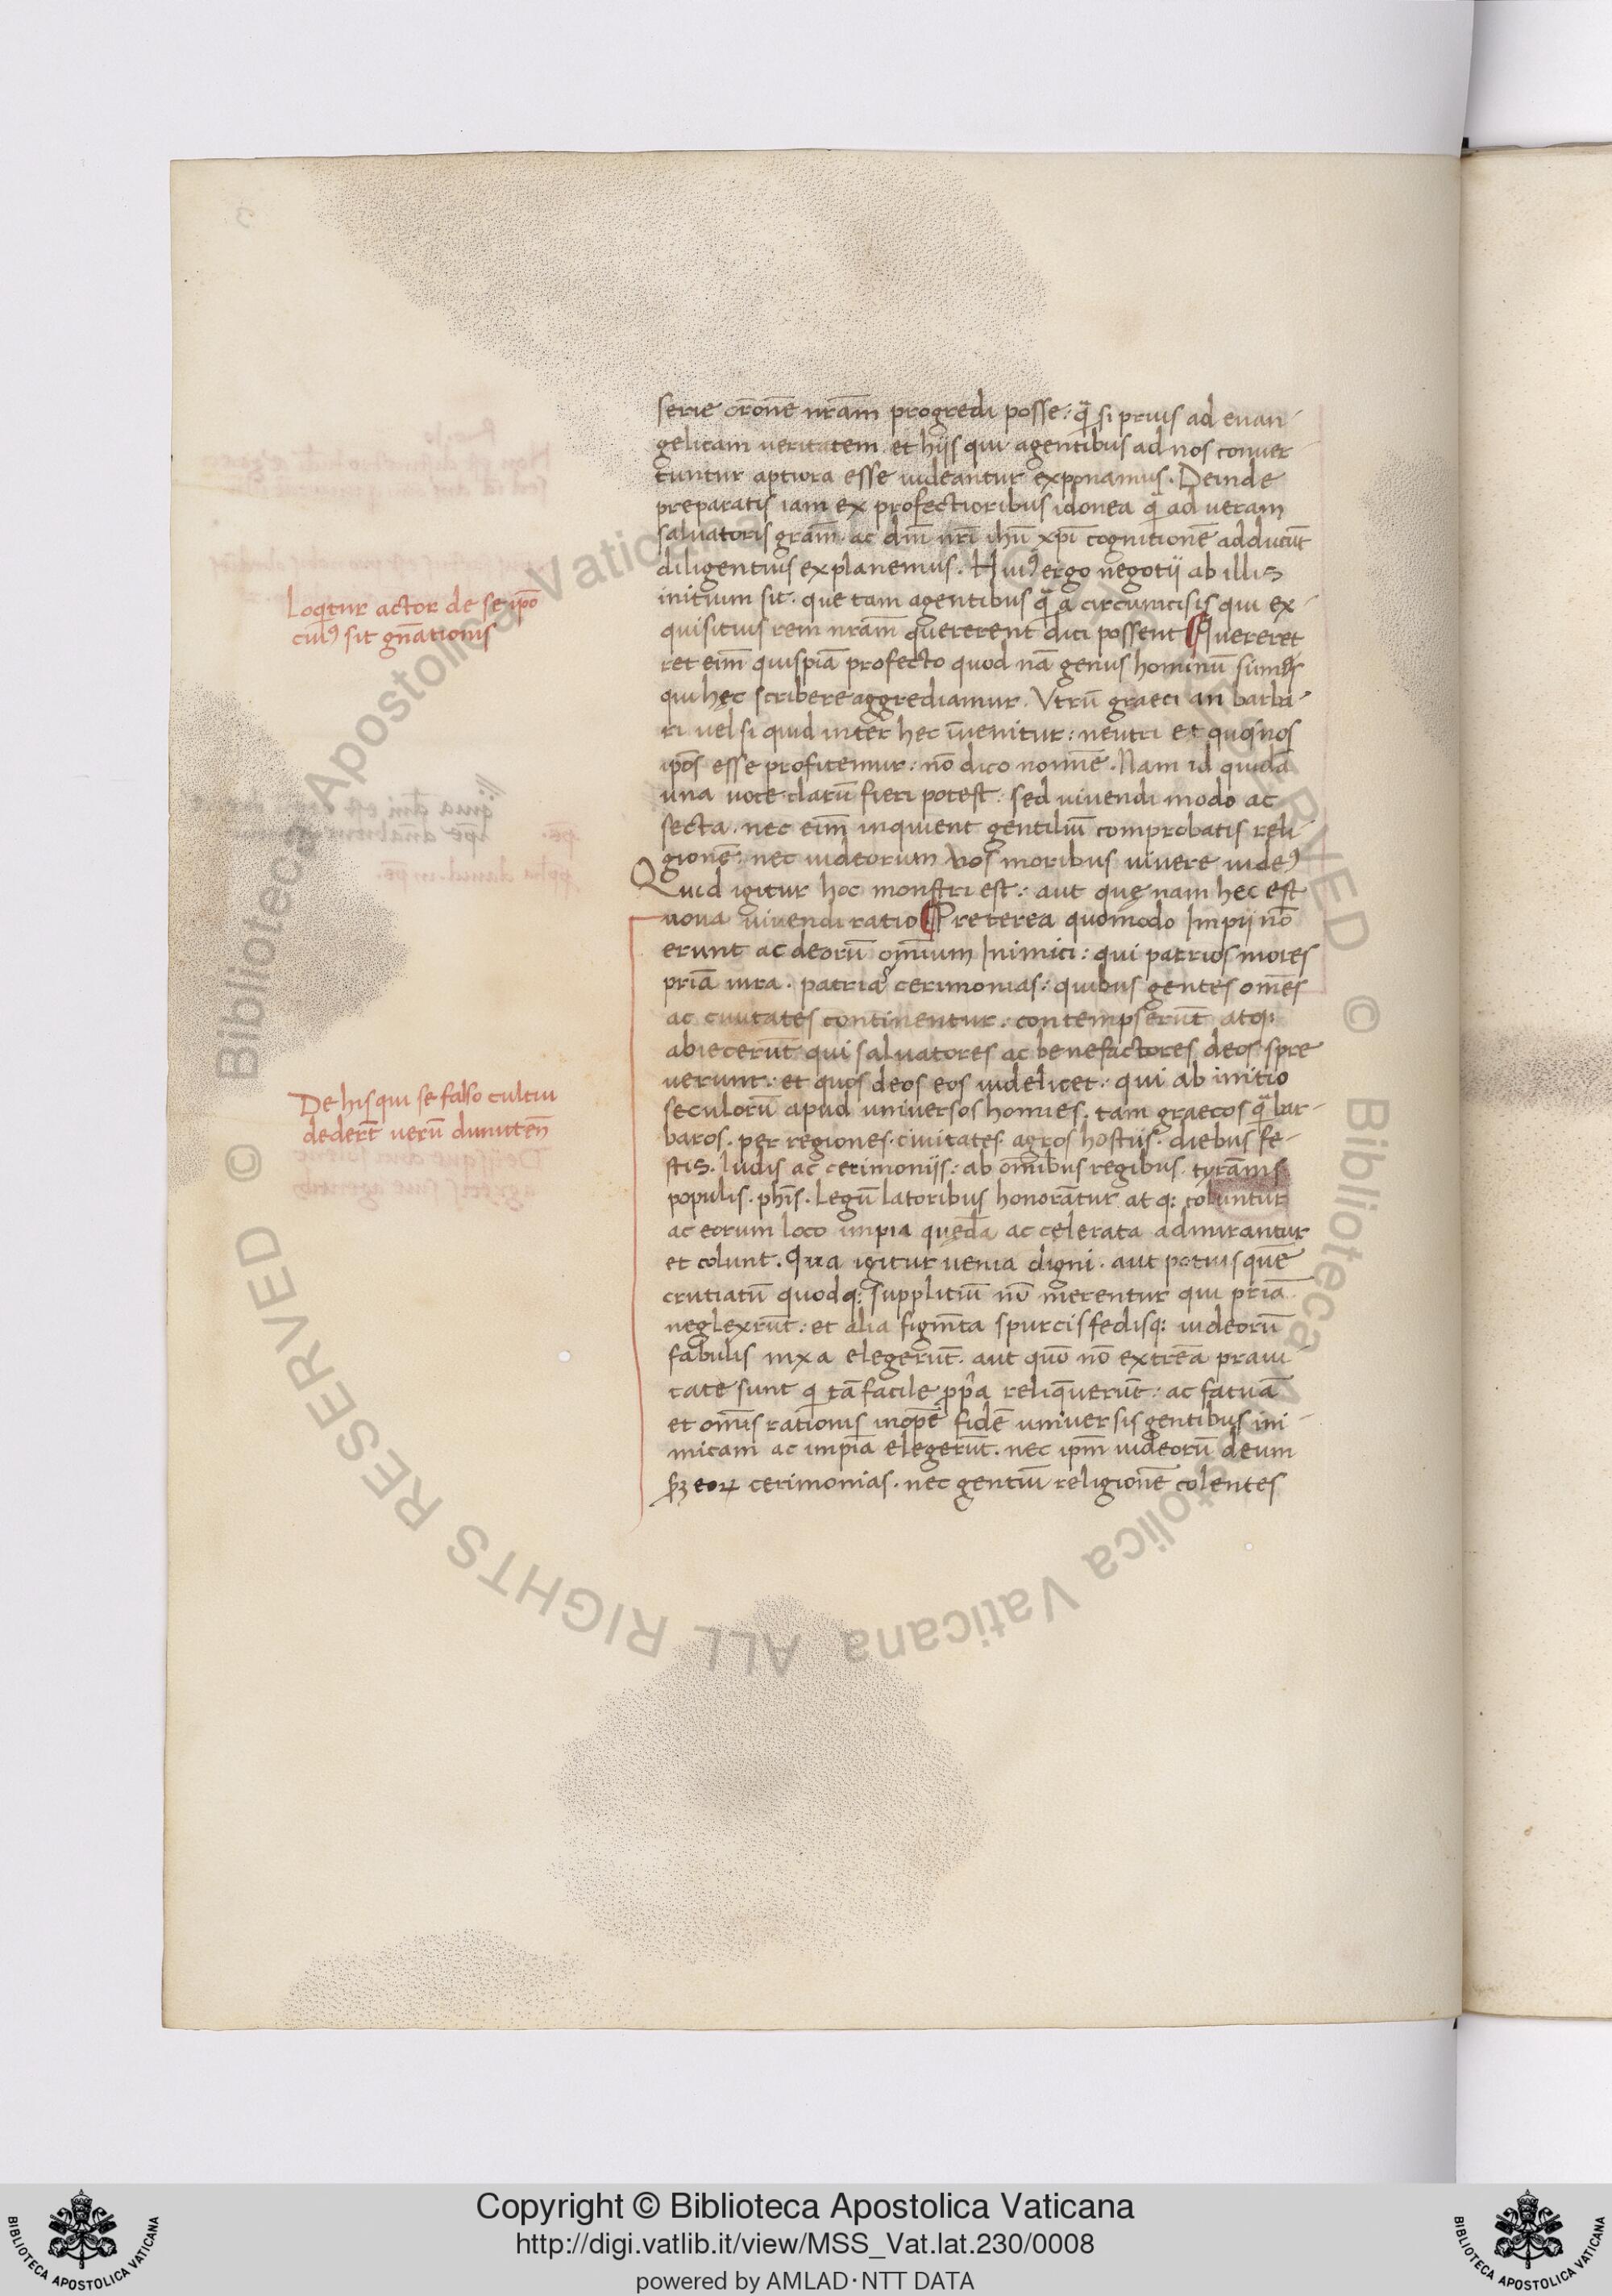 serie orōnē nrām progredi posse: qͣ si prius ad euan-
gelicam ueritatem et hijs qui agentibus ad nos conuer-
tuntur aptiora esse uideantur exponamus. Deinde
preparatis iam ex profectioribus idonea qͣ ad ueram
saluatoris grām. ac dn̄i nr̄i ihū xpī cognitionē adducūt
diligentius explanemus. Huiꝰ ergo negotij ab illis
initium sit. que tam agentibus qͣ a circumcisis qui ex-
quisitius rem nrām quererent dici possent ¶ Quereret
ret eim̄ quispiā profecto quod nā genus hominū simꝰ
qui hęc scribere aggrediamur. Vtrū graeci an barba-
ri uel si quid inter hec īuenitur: neutri et quos nos
ipōs esse profitemur: nō dico nomīe. Nam id quidā
una uoce clarū fieri potest. sed uiuendi modo ac
secta. nec eim̄ inquient gentiliū comprobatis reli-
gionē. nec iudeorum uos moribus uiuere uideꝰ
Quid igitur hoc monstri est: aut quę nam hec est
noua uiuendi ratio ¶ Preterea quomodo Impij nō
erunt ac deorū om̄ium Inimici: qui patrios mores
priā iura. patriaꝰ cerimonias: quibus gentes omēs
ac ciuitates continentur: contempserūt atqꝫ
abiecerūt qui saluatores ac benefactores deos spre
uerunt: et quos deos eos uidelicet: qui ab initio
seculorū apud uniuersos homīes. tam graecos qͣ bar-
baros. per regiones. ciuitates. agros hostijs. diebus fe-
stis. ludis ac cerimonijs: ab omībus regibus. tyrānis
populis. phīs. legū latoribus honorātur atqꝫ coluntur
ac eorum loco impia quędā ac celerata admirantur
et colunt. Qua igitur uenia digni. aut potius quē
crutiatū quodqꝫ suppliciū nō merentur qui priā
neglexrūt: et alia figmīta spurcis fedisqꝫ iudeorū
fabulis nixa elegerūt. aut quō nō extrēa praui
tate sunt q̄ tā facile pp̄a reliq̄uerūt: ac fatuā
et omīs rationis inopē fidē uniuersis gentibus ini-
micam ac impiā elegerūt. nec ipm̄ iudeorū deum
p̱ꝫ eoꝝ cerimonias. nec gentiū religionē colentes
Loqͥtur actor de seipō
cuiꝰ sit gnātionis
De his qui se falso cultui
dedert̄ uerū dimitēn
Copyright © Biblioteca Apostolica Vaticana
http://digi.vatlib.it/view/MSS_Vat.lat.230/0008
powered by AMLAD·NTT DATA
BIBLIOTECA APOSTOLICA VATICANA
BIBLIOTECA APOSTOLICA VATICANA
© Biblioteca Apostolica Vaticana ALL RIGHTS RESERVED © Biblioteca Apostolica Vaticana ALL RIGHTS RESERVED